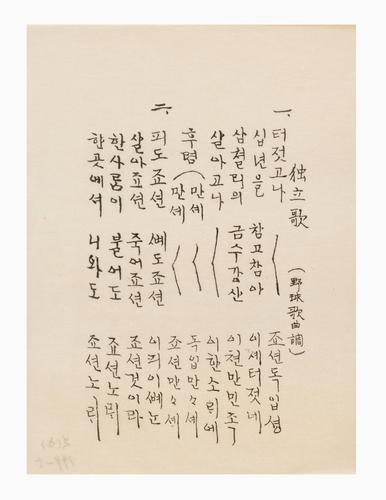 独立歌 (野球歌曲調)
一、 터젓고나 〈 죠션독입셩
십년을 참고참아 이셰터젓네
삼쳘리의 금수강산 이쳔만민족
살아고나 〈 이한소ᄅᆡ에
후렴 (만셰 〈 독입만々셰
만셰 〈 죠션만々셰
二、 피도죠션 ᄲᅧ도죠션 이피이ᄲᅧᄂᆞᆫ
살아죠션 죽어죠션 죠션것이라
한사ᄅᆞᆷ이 불어도 죠션노ᄅᆡ
한곳에셔 나와도 죠션노ᄅᆡ